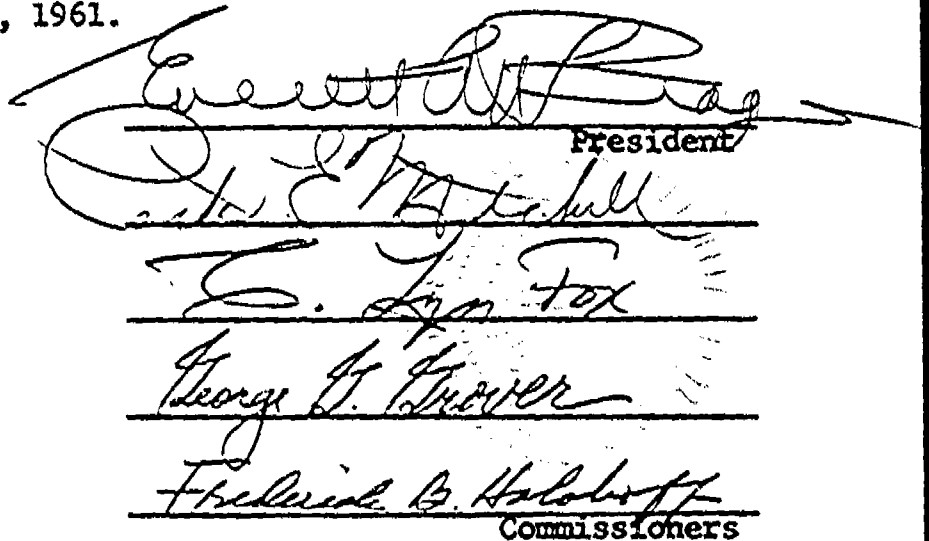 , 1961.
Everett
President
E. Mitchell
E. Lyn Fox
George G. Grover
Frederick B. Holoboff
Commissioners